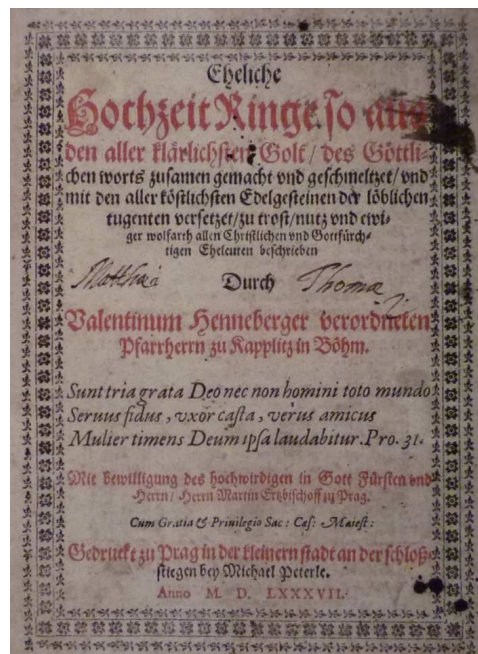 Eheliche
Hochzeit Ringe so aus
den aller klärlichsten Golt / des Göttli-
chen worts zusamen gemacht vnd geschmeltzet / vnd
mit den aller köstlichsten Edelgesteinen der löblichen
tugenten versetzet / zu trost / nutz vnd ewi-
ger wolfarth allen Christlichen vnd Gottfürch-
tigen Eheleuten beschrieben
Durch Thoma
Valentinum Henneberger verordneten
Pfarrherrn zu Kapplitz in Böhm.
Sunt tria grata Deo nec non homini toto mundo
Seruus fidus, vxor casta, verus amicus
Mulier timens Deum ipsa laudabitur. Pro. 31.
Mit bewilligung des hochwirdigen in Gott Fürsten vnd
Herrn / Herrn Martin Ertzbischoff zu Prag.
Cum Gratia & Priuilegio Sac: Cæs: Maiest:
Gedruckt zu Prag in der kleinern stadt an der schloß-
stiegen bey Michael Peterle.
Anno M. D. LXXXVII.